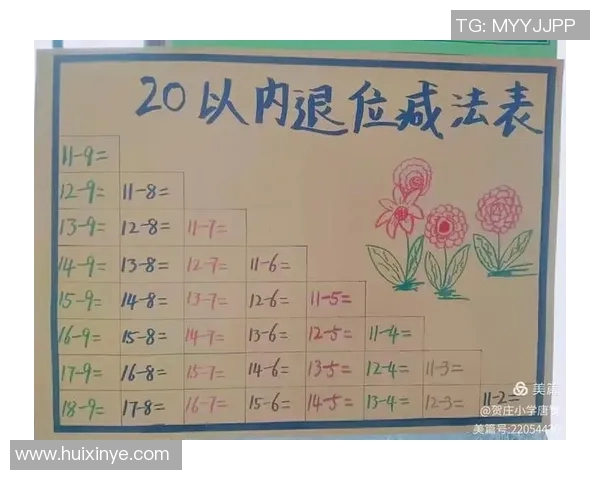 TG: MYYJJPP
20以内退位减法表
11-9=
12-9= 11-8=
13-9= 12-8= 11-7=
14-9= 13-8= 12-7= 11-6=
15-9= 14-8= 13-7= 12-6= 11-5=
16-9= 15-8= 14-7= 13-6= 12-5= 11-4=
17-9= 16-8= 15-7= 14-6= 13-5= 12-4= 11-3=
18-9= 17-8= 16-7= 15-6= 14-5= 13-4= 12-3= 11-2=
美篇
@贺庄小学唐
美篇号:22054420
www.huixinye.com